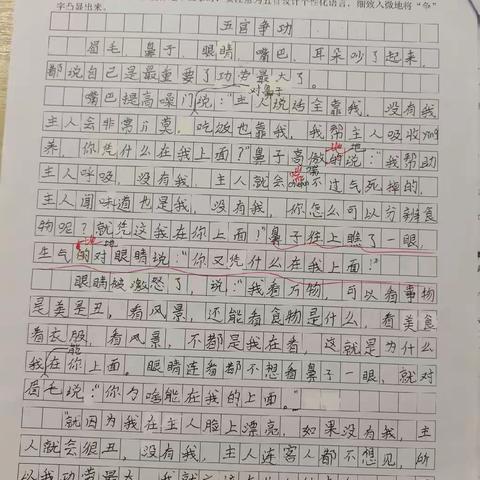 字凸显出来。
五官争功
眉毛，鼻子，眼睛，嘴巴，耳朵吵了起来，
都说自己是最重要了功劳最大了。
对鼻子
嘴巴提高嗓门说：“主人说话全靠我，没有我
主人会非常ji莫，吃饭也靠我，我帮主人吸收ying
养，你凭什么在我上面？”鼻子高傲的说：“我帮助
地
主人呼吸，没有我，主人就会 不过气死掉的，
主人闻味道也是我，没有我，你怎么可以分辨食
物呢？就凭这我在你上面！”鼻子往上瞧了一眼，
地
生气的对眼睛说：“你又凭什么在我上面！”
眼睛被激怒了，说：“我看万物，可以看事物
是美是丑，看风景，还能看食物是什么，看美食
看衣服，看风景，不都是我在看，这就是为什么
能
我在你上面。眼睛连看都不想看鼻子一眼，就对
眉毛说：“你为啥能在我的上面。”
“就因为我在主人脸上漂亮，如果没有我，主
人就会很丑，没有我，主人连客人都不想见，所
以我功劳最大，我就